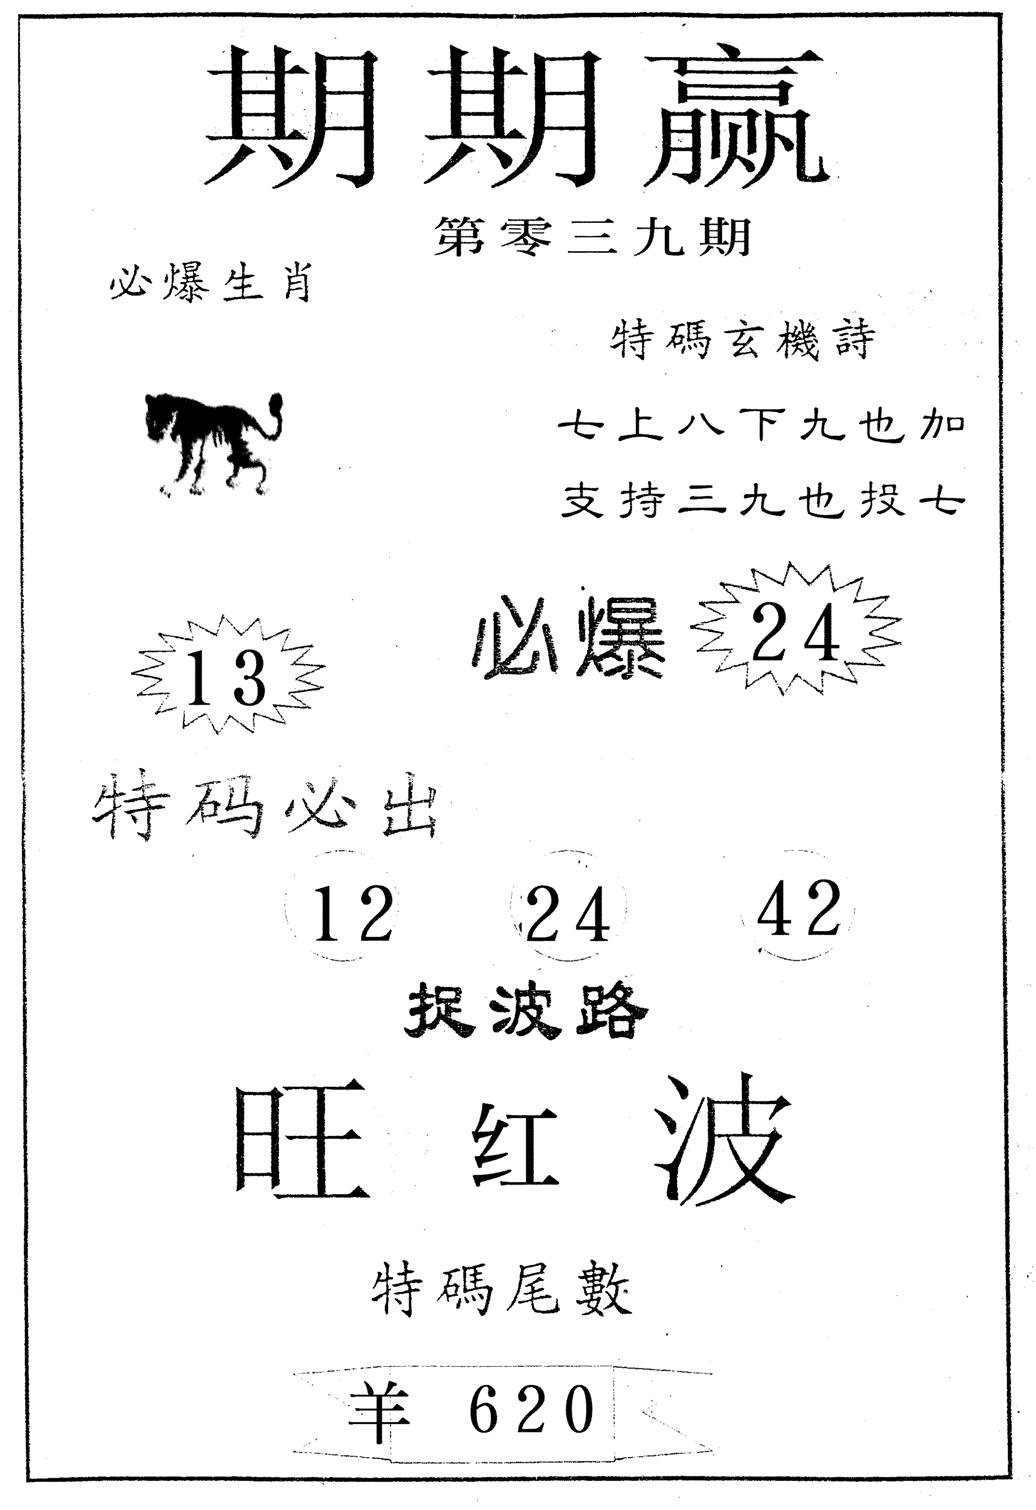 期期赢
第零三九期
必爆生肖
特碼玄機詩
七上八下九也加
支持三九也投七
必爆 24
13
特码必出
12 24 42
捉波路
旺红波
特碼尾數
羊 620